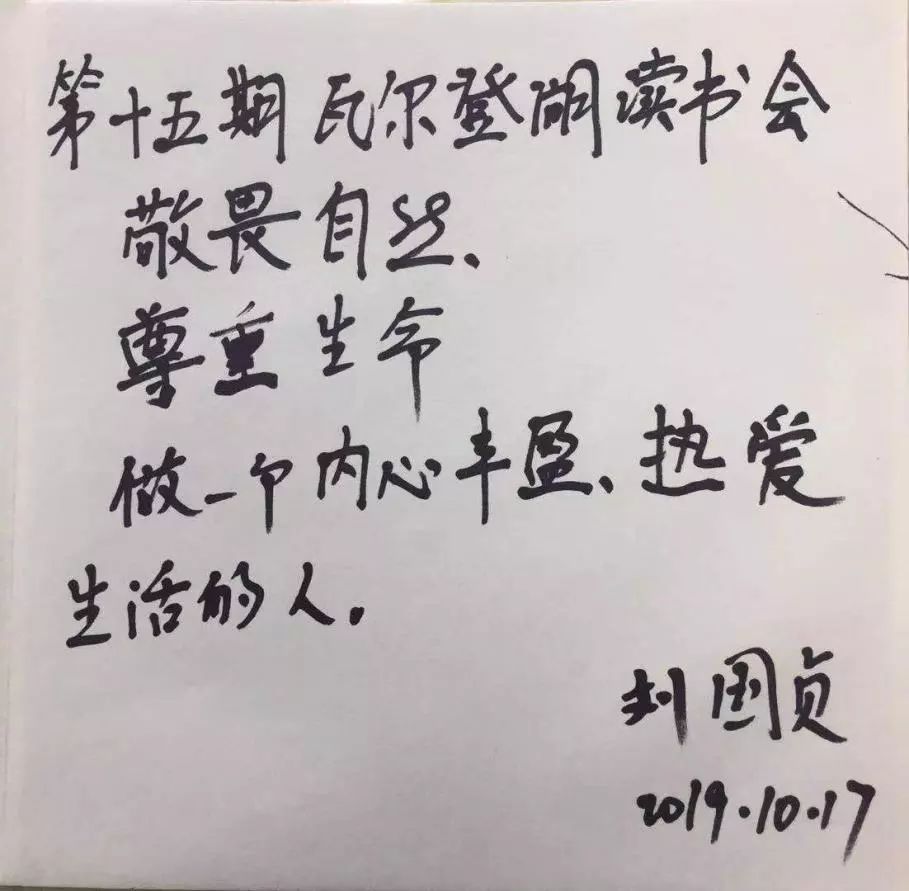 第十五期瓦尔登湖读书会
敬畏自然、
尊重生命
做一个内心丰盈、热爱
生活的人。
刘国贞
2019.10.17